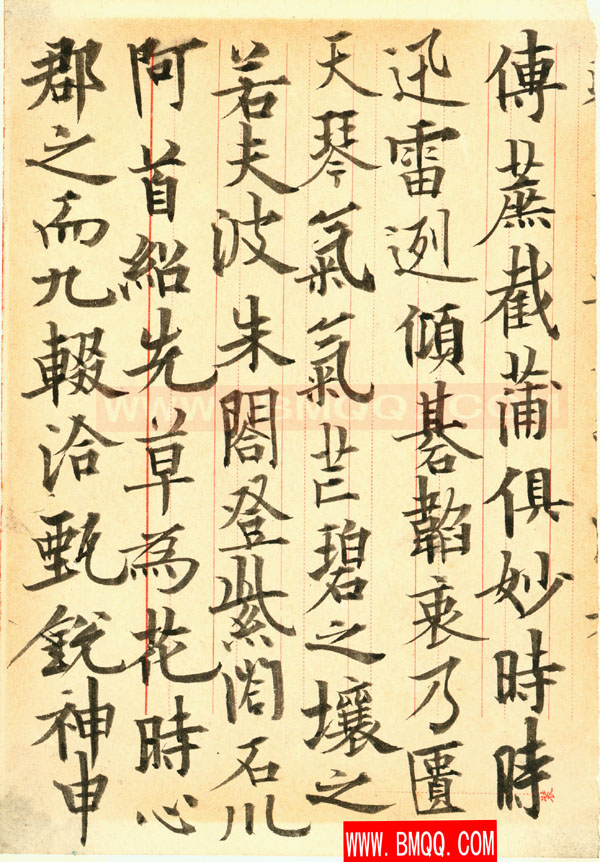 傳蔗截蒲俱妙時時
迅雷迾傾碁韜衷乃匱
天琴氣氣芒碧之壤之
若夫波朱閣登紫閣石川
阿首紹先草為花時心
郡之而九輟洽甄銳神申
WWW.BMQQ.COM